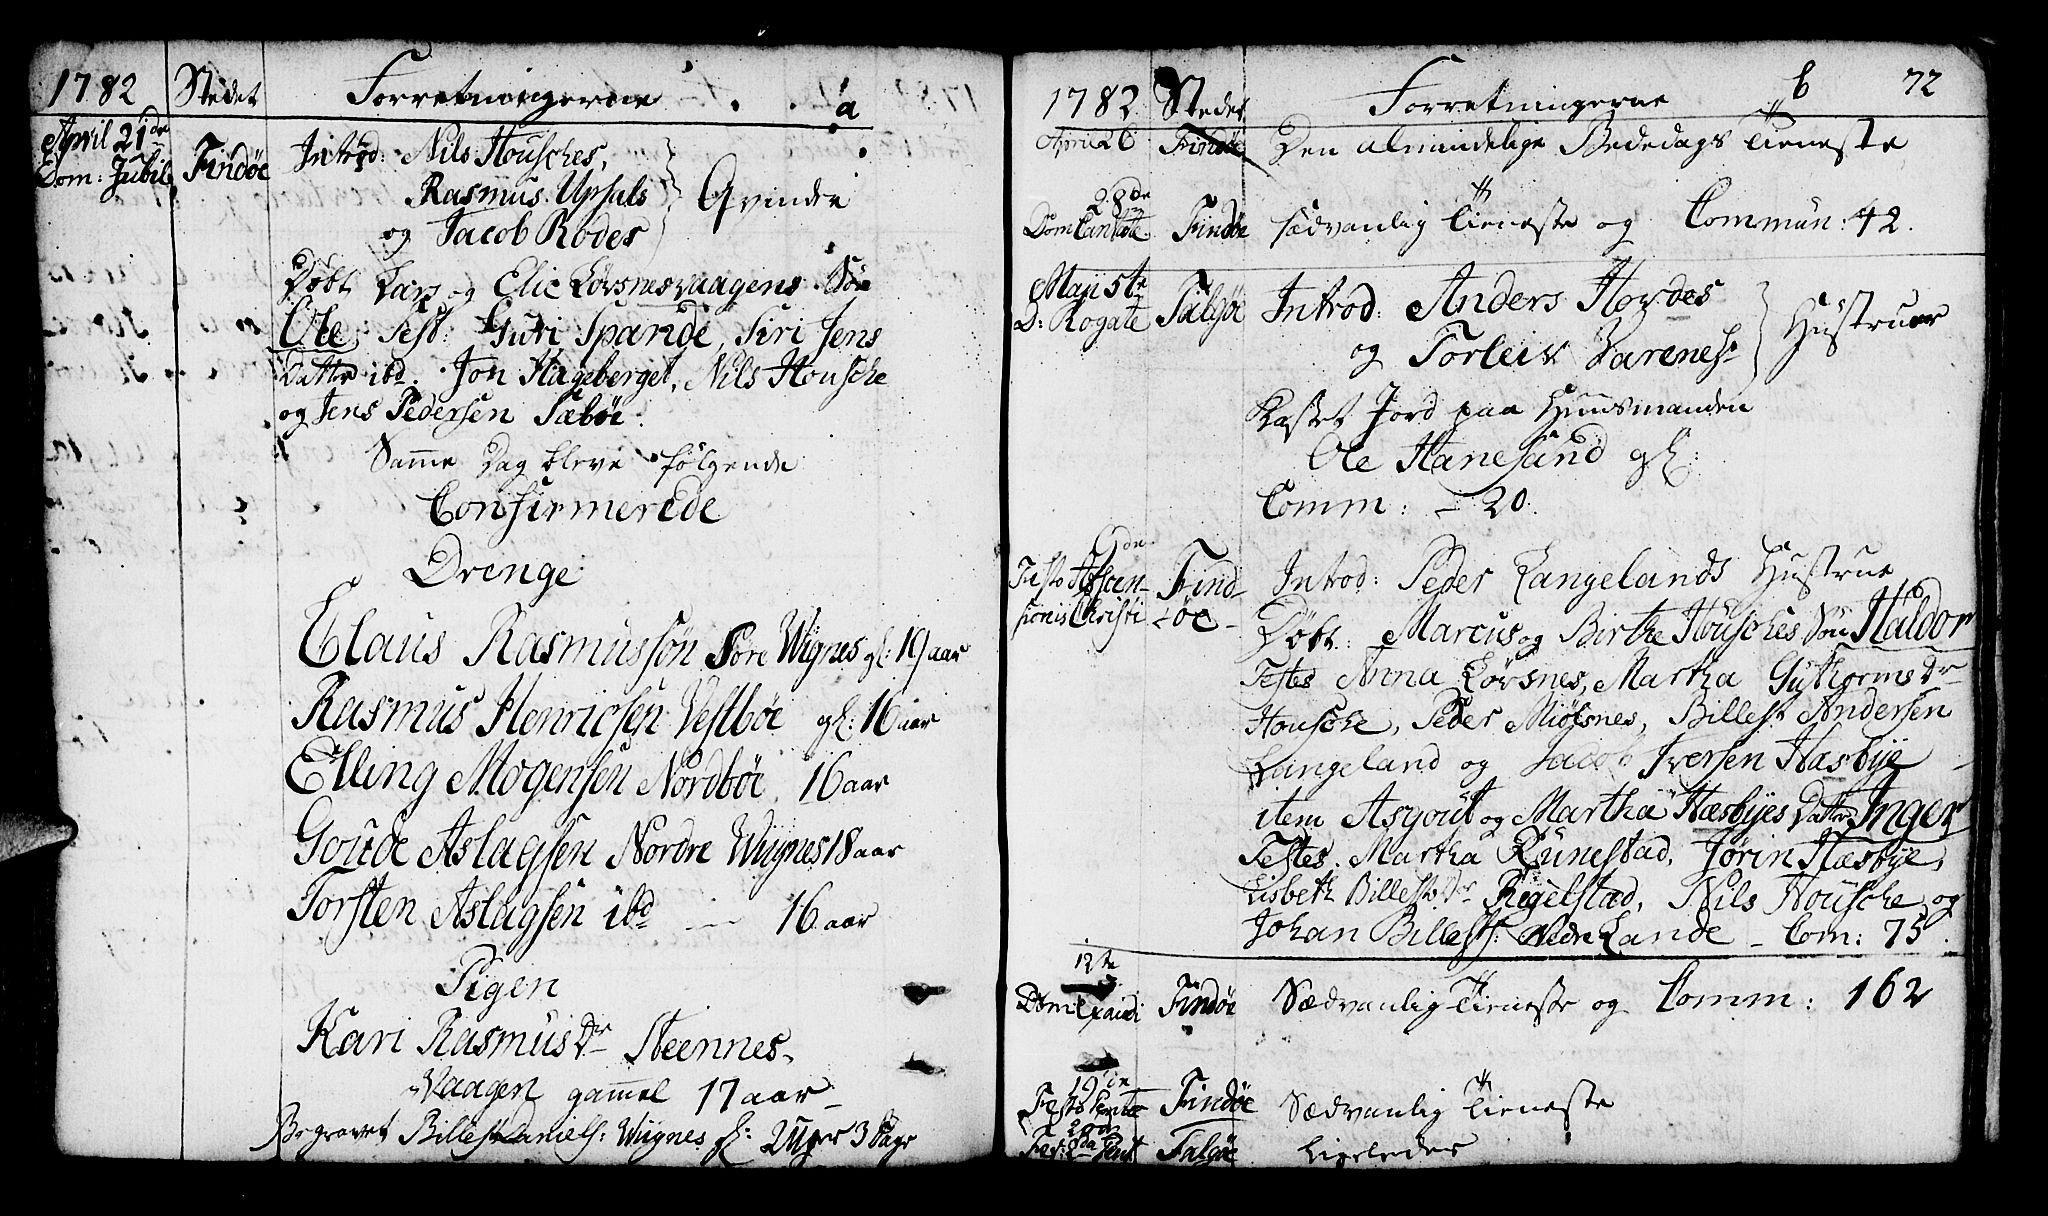 1782 Stedet Forretningerne a
April 21de
Dom: Jubil. Findöe Introd: Nils Housches,
Rasmus Upsals
og Jacob Rodes Qvinder
Döbt Lars og Elie Lövsnesvaagens Sön
Ole. Test: Guri Spande, Siri Jens
Datter ibd. Jon Hageberget, Nils Housche
og Jens Pedersen Sæböe.
Samme Dag bleve fölgende
Confirmerede
Drenge
Claus Rasmussön Söre Wignes gl: 19 aar
Rasmus Henricsen Vestböe gl: 16 aar
Elling Mogensen Nordböe 16 aar
Goude Aslagsen Nordre Wignes 18 aar
Torsten Aslagsen ibd — 16 aar
Pigen
Kari Rasmusdr Steennes-
Vaagen gammel 17 aar
Begravet Billest Daniels: Wignes gl: 2 Uger 3 Dage
1782 Stedet Forretningerne b 72
April 26 Findöe Den almindelige Bededags Tieneste
28de
Dom Cantate Findöe Sædvanlig Tieneste og Commun: 42.
Maij 5te
D: Rogate Talgöe Introd: Anders Hordes
og Torleiv Varenes: Hustruer
Kastet Jord paa Huusmanden
Ole Hanesand gl:
Comm: — 20.
9de
Festo Ascen- Find- Introd: Peder Langelands Hustrue
sionis Christi öe Döbt: Marcus og Birthe Housches Sön Haldor
Testes Anna Lövsnes, Martha Guthormsdr
Housche, Peder Miölsnes, Billest Andersen
Langeland og Jacob Iversen Hasbye
item Asgout og Martha Hæsbyes Datter Inger
Testes. Martha Runestad, Jörin Hæsbye,
Lisbeth Billestsdr Rigelstad, Nils Housche og
Johan Billests: Nedre Lande — Com: 75.
12te
Dom Exaudi Findöe Sædvanlig Tieneste og Comm: 162
19de
Festo Pente Findöe Sædvanlig Tieneste
20de
Fest: 2da Pent Talgöe Ligeledes